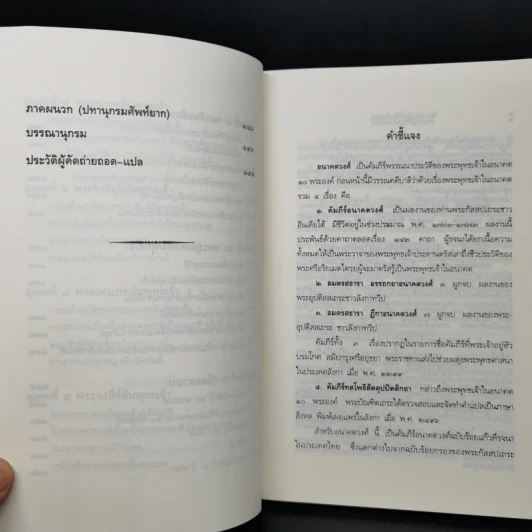 ภาคผนวก (ปทานุกรมศัพท์ยาก)
บรรณานุกรม
ประวัติผู้คัดถ่ายถอด-แปล
คำชี้แจง
อนาคตวงศ์ เป็นคัมภีร์พรรณนาประวัติของพระพุทธเจ้าในอนาคต
๑๐ พระองค์ ก่อนหน้านี้มีวรรณคดีบาลีว่าด้วยเรื่องพระพุทธเจ้าในอนาคต
รวม ๔ เรื่อง คือ
๑. คัมภีร์อนาคตวงศ์ เป็นผลงานของท่านพระกัสสปเถระชาว
อินเดียใต้ มีชีวิตอยู่ในช่วงประมาณ พ.ศ. ๑๗๐๓-๑๗๗๓ ผลงานนี้
ประพันธ์ด้วยคาถาตลอดเรื่อง ๑๔๒ คาถา ผู้รจนาได้ยกเนื้อความ
ทั้งหมดให้เป็นพระวาจาของพระพุทธเจ้าประทานตรัสเล่าถึงชีวประวัติของ
พระศรีอริยเมตไตรยผู้จะมาตรัสรู้เป็นพระพุทธเจ้าในอนาคต
๒. อมตรสธารา อรรถกถาอนาคตวงศ์ ๓ ผูกจบ ผลงานของ
พระอุปติสสเถระชาวลังกาทวีป
๓. อมตรสธารา ฎีกาอนาคตวงศ์ ๗ ผูกจบ ผลงานของพระ-
อุปติสสเถระ ชาวลังกาทวีป
คัมภีร์ทั้ง ๓ เรื่องปรากฏในรายการชื่อคัมภีร์ที่พระเจ้าอยู่หัว
บรมโกศ สมัยกรุงศรีอยุธยา พระราชทานส่งไปช่วยผดุงพระพุทธศาสนา
ในประเทศลังกา เมื่อ พ.ศ. ๒๒๙๙
๔. คัมภีร์ทสโพธิสัตตุปปัตติกถา กล่าวถึงพระพุทธเจ้าในอนาคต
๑๐ พระองค์ พระบัณฑิตเถระได้ตรวจสอบและจัดทำคำแปลเป็นภาษา
สิงหล พิมพ์เผยแพร่ในลังกา เมื่อ พ.ศ. ๒๔๗๖
สำหรับอนาคตวงศ์ นี้ เป็นคัมภีร์อนาคตวงศ์ฉบับร้อยแก้วที่รจนา
ในประเทศไทย ซึ่งแตกต่างไปจากฉบับร้อยกรองของพระกัสสปเถระ